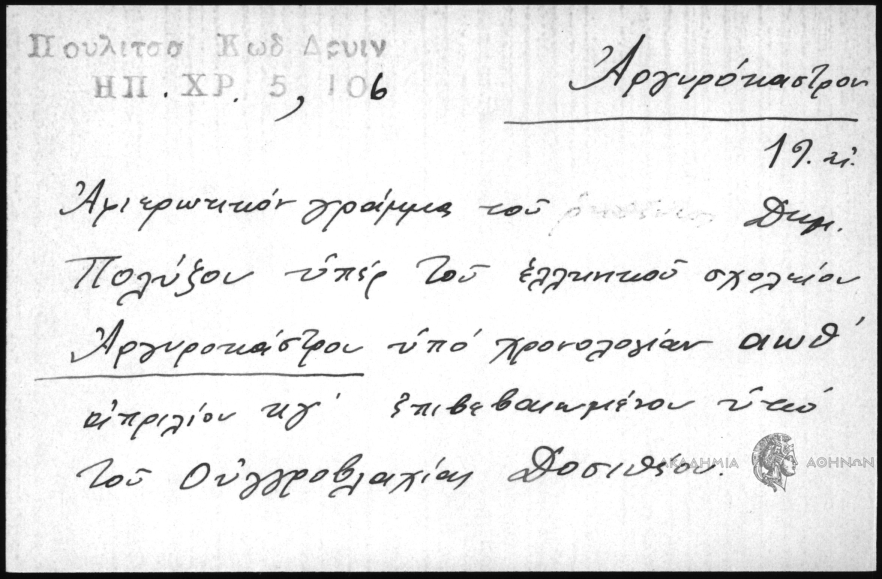 Πουλιτσα Κωδ Δρυιν
ΗΠ. ΧΡ. 5, 106
Ἀργυρόκαστρον
19. αἰ.
Ἀφιερωτικόν γράμμα τοῦ Δημ.
Πολύξου ὑπέρ τοῦ ἑλληνικοῦ σχολείου
Ἀργυροκάστρου ὑπό χρονολογίαν αωθ'
ἀπριλίου κγ' ἐπιβεβαιωμένου ὑπό
τοῦ Οὐγγροβλαχίας Δοσιθέου.
ΑΚΑΔΗΜΙΑ ΑΘΗΝΩΝ